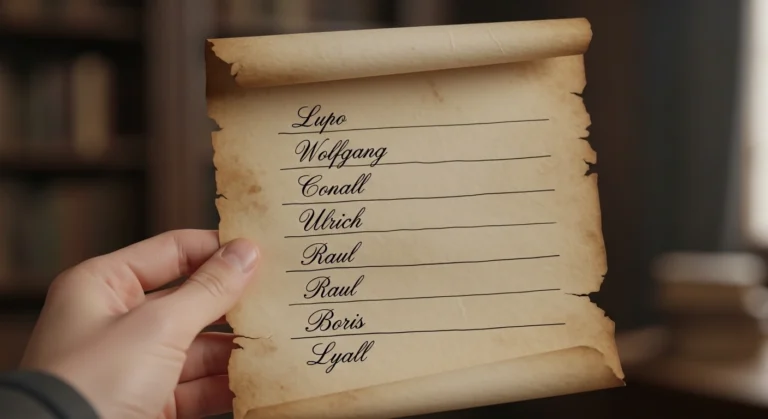 Lupo
Wolfgang
Conall
Ulrich
Raul
Raul
Boris
Lyall